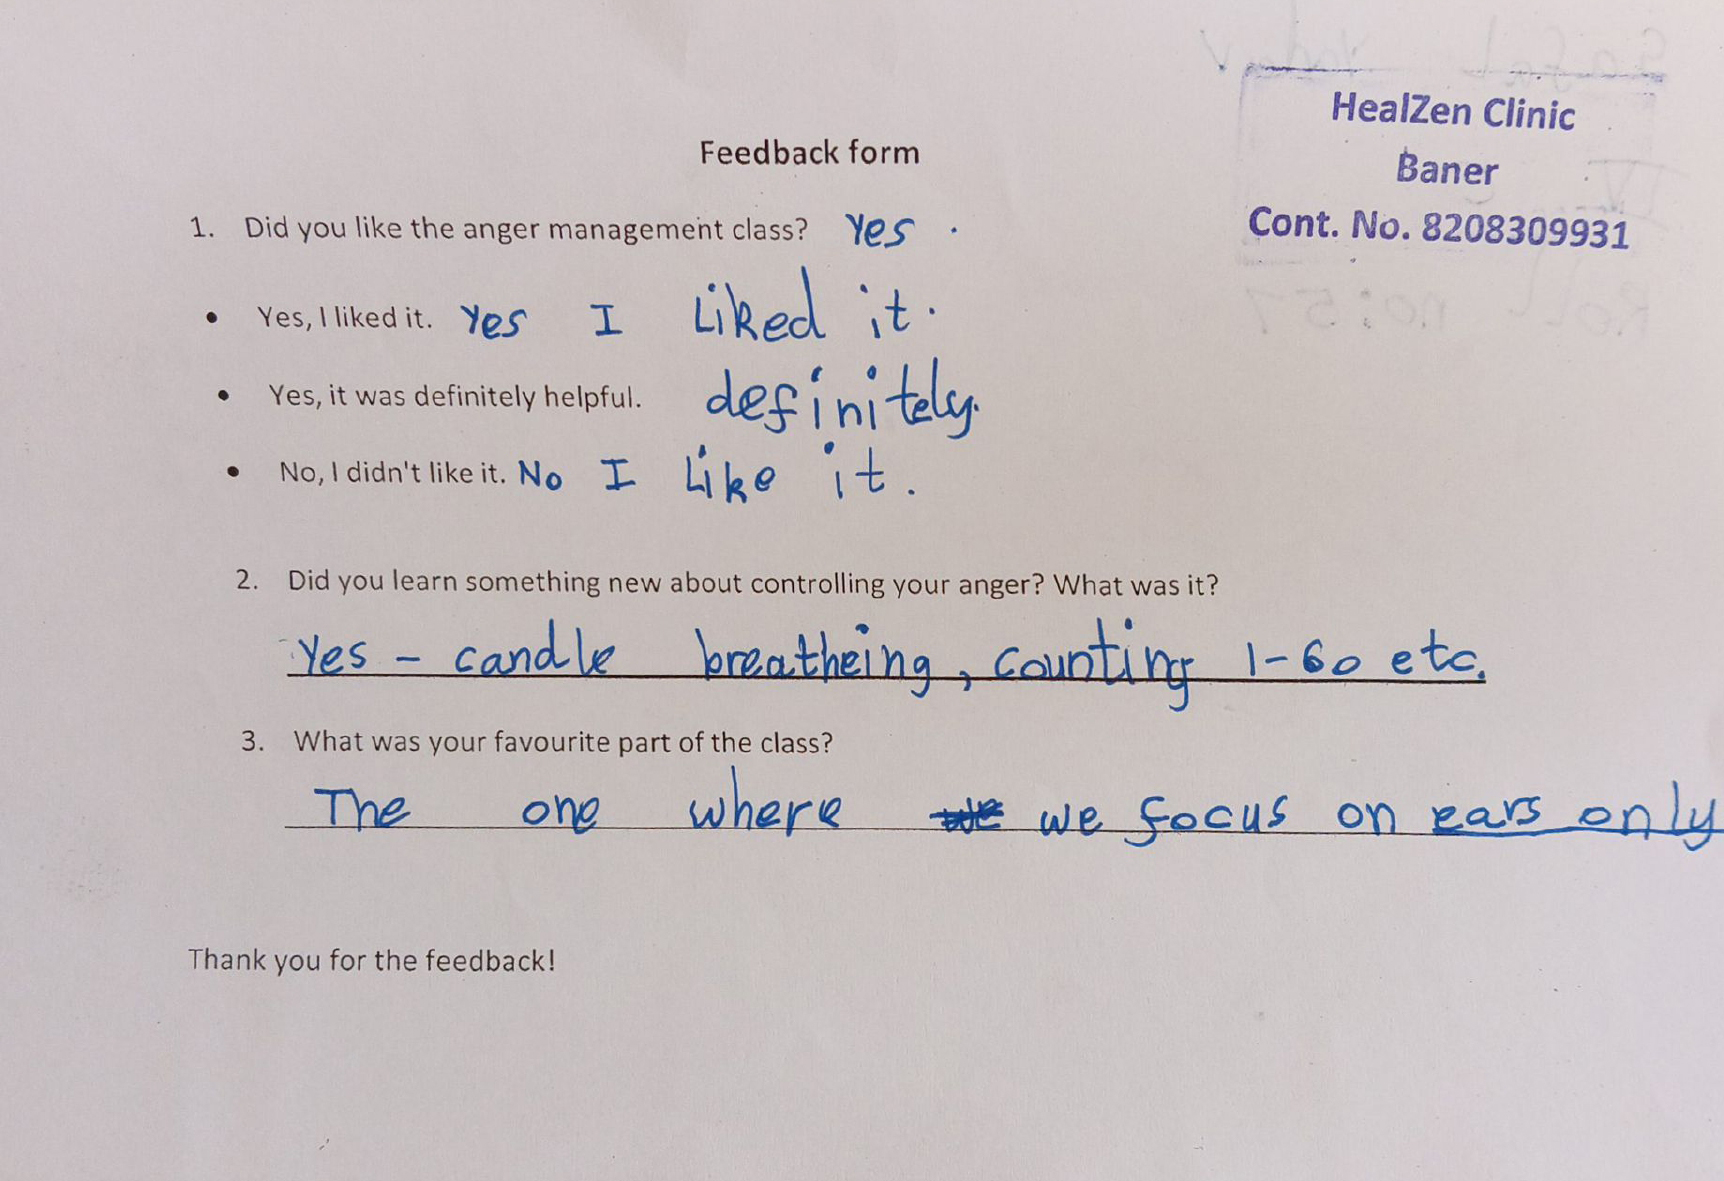 HealZen Clinic
Baner
Cont. No. 8208309931
Feedback form
1. Did you like the anger management class? Yes .
• Yes, I liked it. Yes I Liked it.
• Yes, it was definitely helpful. definitely.
• No, I didn't like it. No I Like it.
2. Did you learn something new about controlling your anger? What was it?
Yes - candle breatheing, counting 1-60 etc.
3. What was your favourite part of the class?
The one where we focus on ears only
Thank you for the feedback!